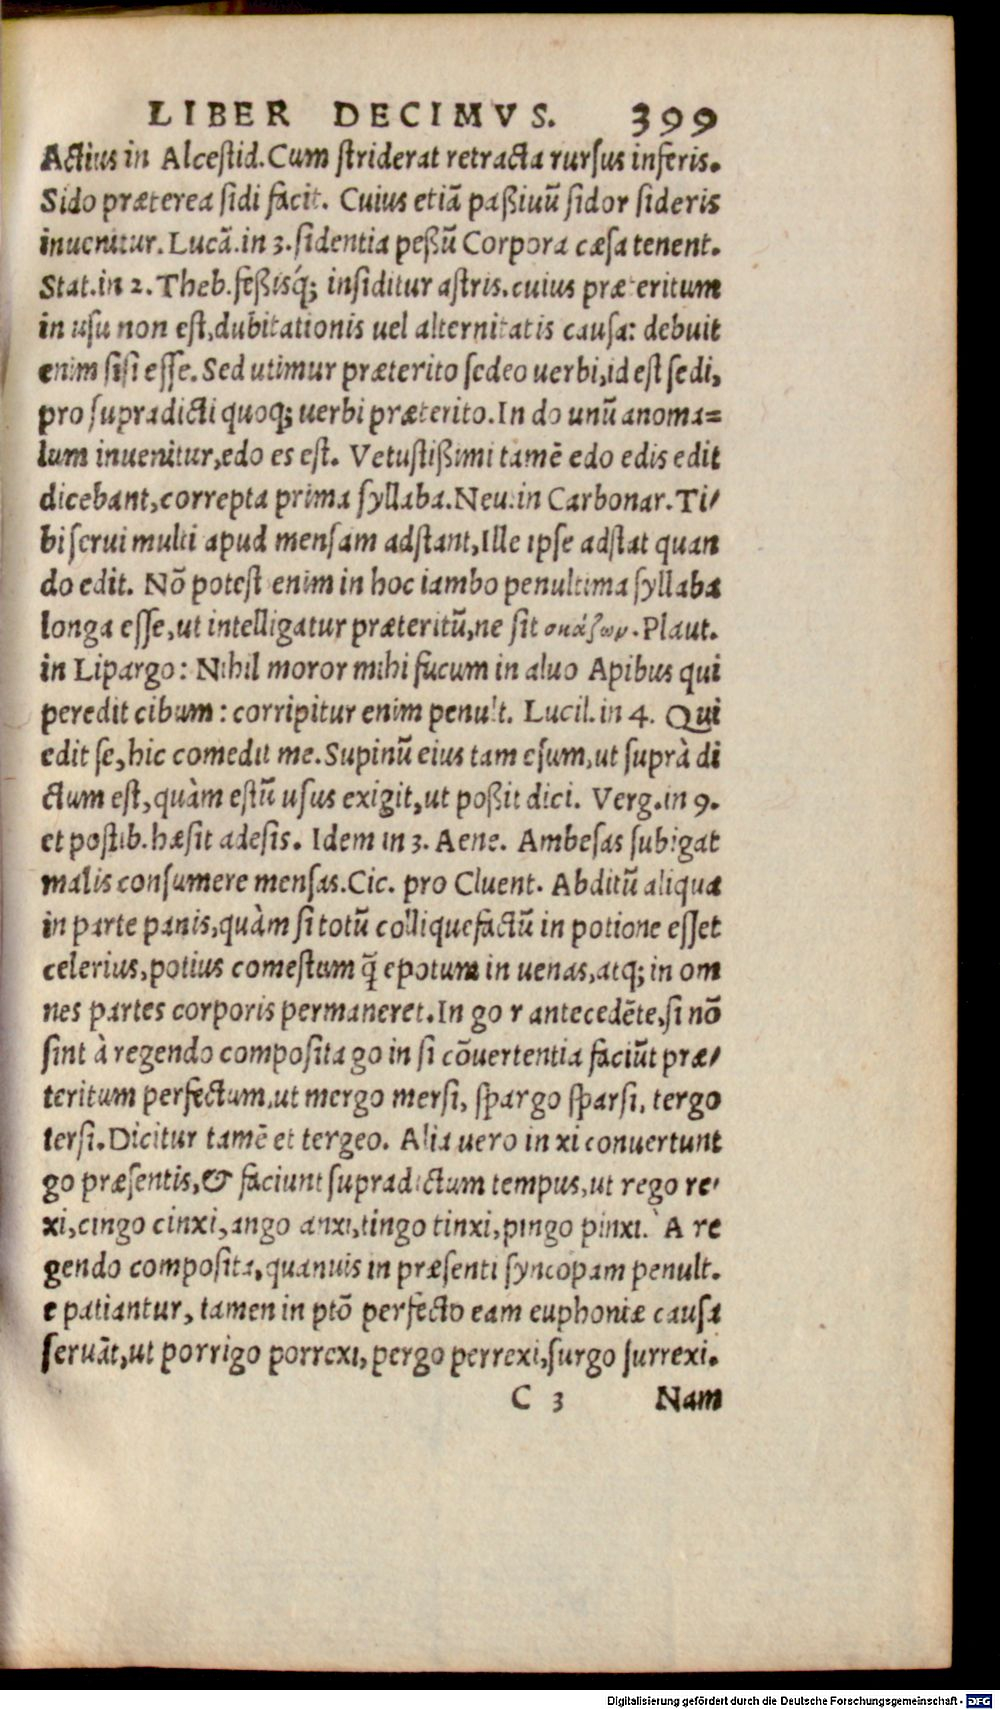 LIBER DECIMVS. 399
Actius in Alcestid. Cum striderat retracta rursus inferis.
Sido præterea sidi facit. Cuius etiã paßiuũ sidor sideris
inuenitur. Lucã. in 3. sidentia peßũ Corpora cæsa tenent.
Stat. in 2. Theb. feßisq́; insiditur astris. cuius præteritum
in usu non est, dubitationis uel alternitatis causa: debuit
enim sisi esse. Sed utimur præterito sedeo uerbi, id est sedi,
pro supradicti quoq; uerbi præterito. In do unũ anoma=
lum inuenitur, edo es est. Vetustißimi tamẽ edo edis edit
dicebant, correpta prima syllaba. Neu. in Carbonar. Ti/
bi serui multi apud mensam adstant, Ille ipse adstat quan
do edit. Nõ potest enim in hoc iambo penultima syllaba
longa esse, ut intelligatur præteritũ, ne sit σκάζων. Plaut.
in Lipargo: Nihil moror mihi fucum in aluo Apibus qui
peredit cibum: corripitur enim penult. Lucil. in 4. Qui
edit se, hic comedit me. Supinũ eius tam esum, ut suprà di
ctum est, quàm estũ usus exigit, ut poßit dici. Verg. in 9.
et postib. hæsit adesis. Idem in 3. Aene. Ambesas subigat
malis consumere mensas. Cic. pro Cluent. Abditũ aliqua
in parte panis, quàm si totũ colliquefactũ in potione esset
celerius, potius comestum q̃ epotum in uenas, atq; in om
nes partes corporis permaneret. In go r antecedẽte, si nõ
sint à regendo composita go in si cõuertentia faciũt præ/
teritum perfectum, ut mergo mersi, spargo sparsi, tergo
tersi. Dicitur tamẽ et tergeo. Alia uero in xi conuertunt
go præsentis, & faciunt supradictum tempus, ut rego re/
xi, cingo cinxi, ango anxi, tingo tinxi, pingo pinxi. A re
gendo composita, quanuis in præsenti syncopam penult.
e patiantur, tamen in ptõ perfecto eam euphoniæ causa
seruãt, ut porrigo porrexi, pergo perrexi, surgo surrexi.
C 3 Nam
Digitalisierung gefördert durch die Deutsche Forschungsgemeinschaft - DFG